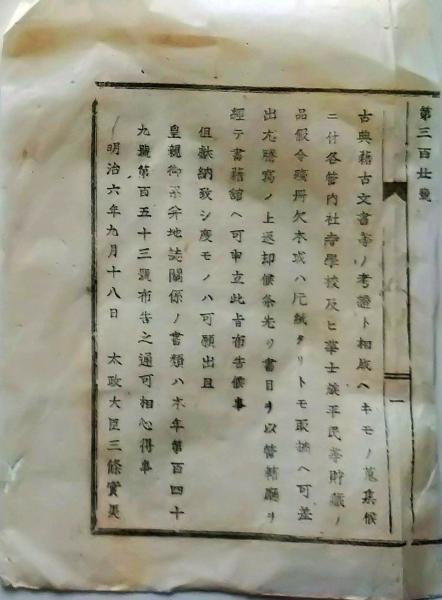 第三百廿號
古典籍古文書等ノ考證ト相成ヘキモノ蒐集候
ニ付各管内社寺學校及ヒ華士族平民等貯藏ノ
品假令殘册欠本或ハ片紙タリトモ取調ヘ可差
出尤謄寫ノ上返却候条先ツ書目ヲ以管轄廳ヲ
經テ書籍館ヘ可申立此旨布告候事
但獻納致シ度モノハ可願出且
皇親御系并地誌關係ノ書類ハ本年第百四十
九號第百五十三號布告之通可相心得事
明治六年九月十八日 太政大臣三條實美
一